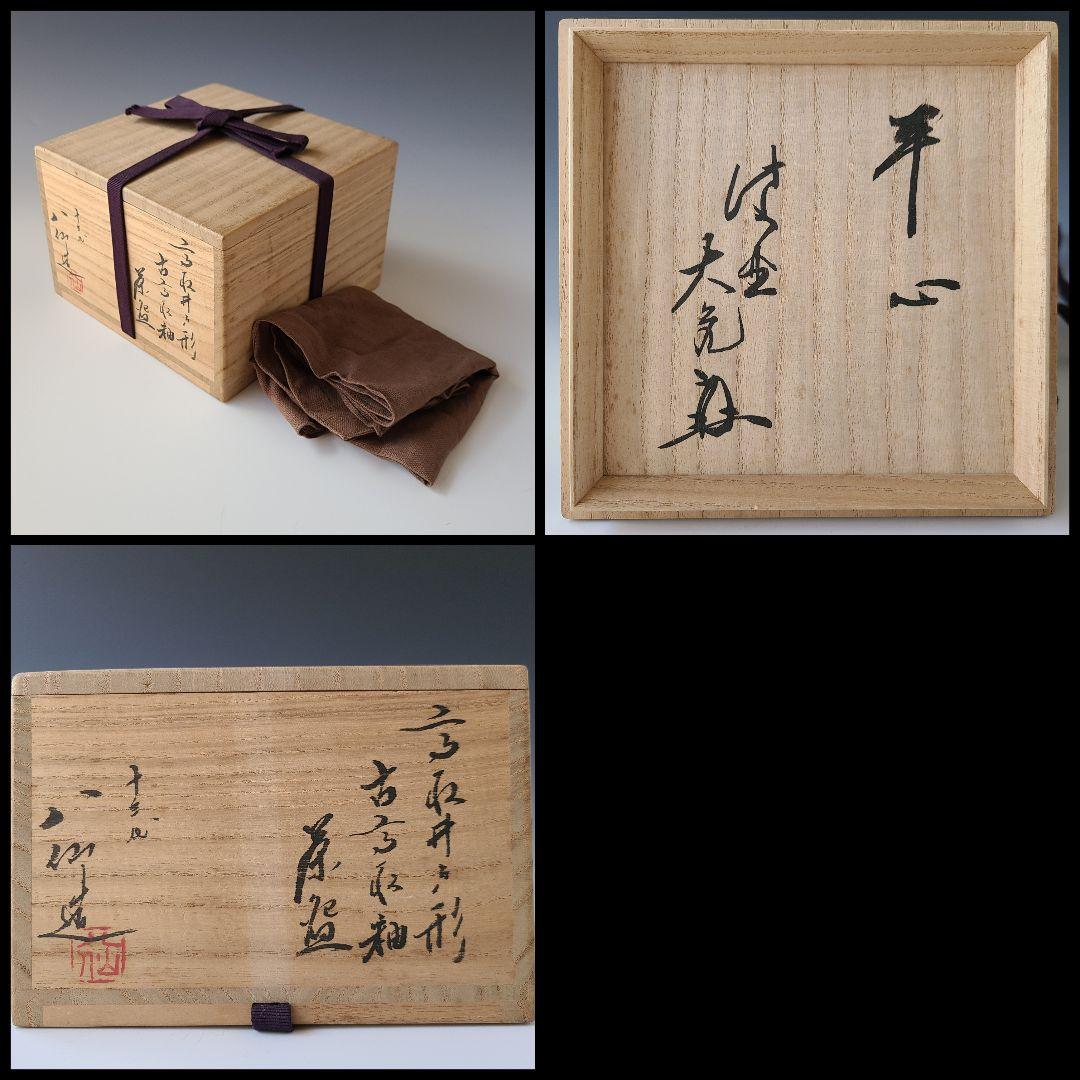 高取井戸形
古高取釉
茶盌
十三代
八仙造
平心
高取井戸形
古高取釉
茶盌
十三代
八仙造